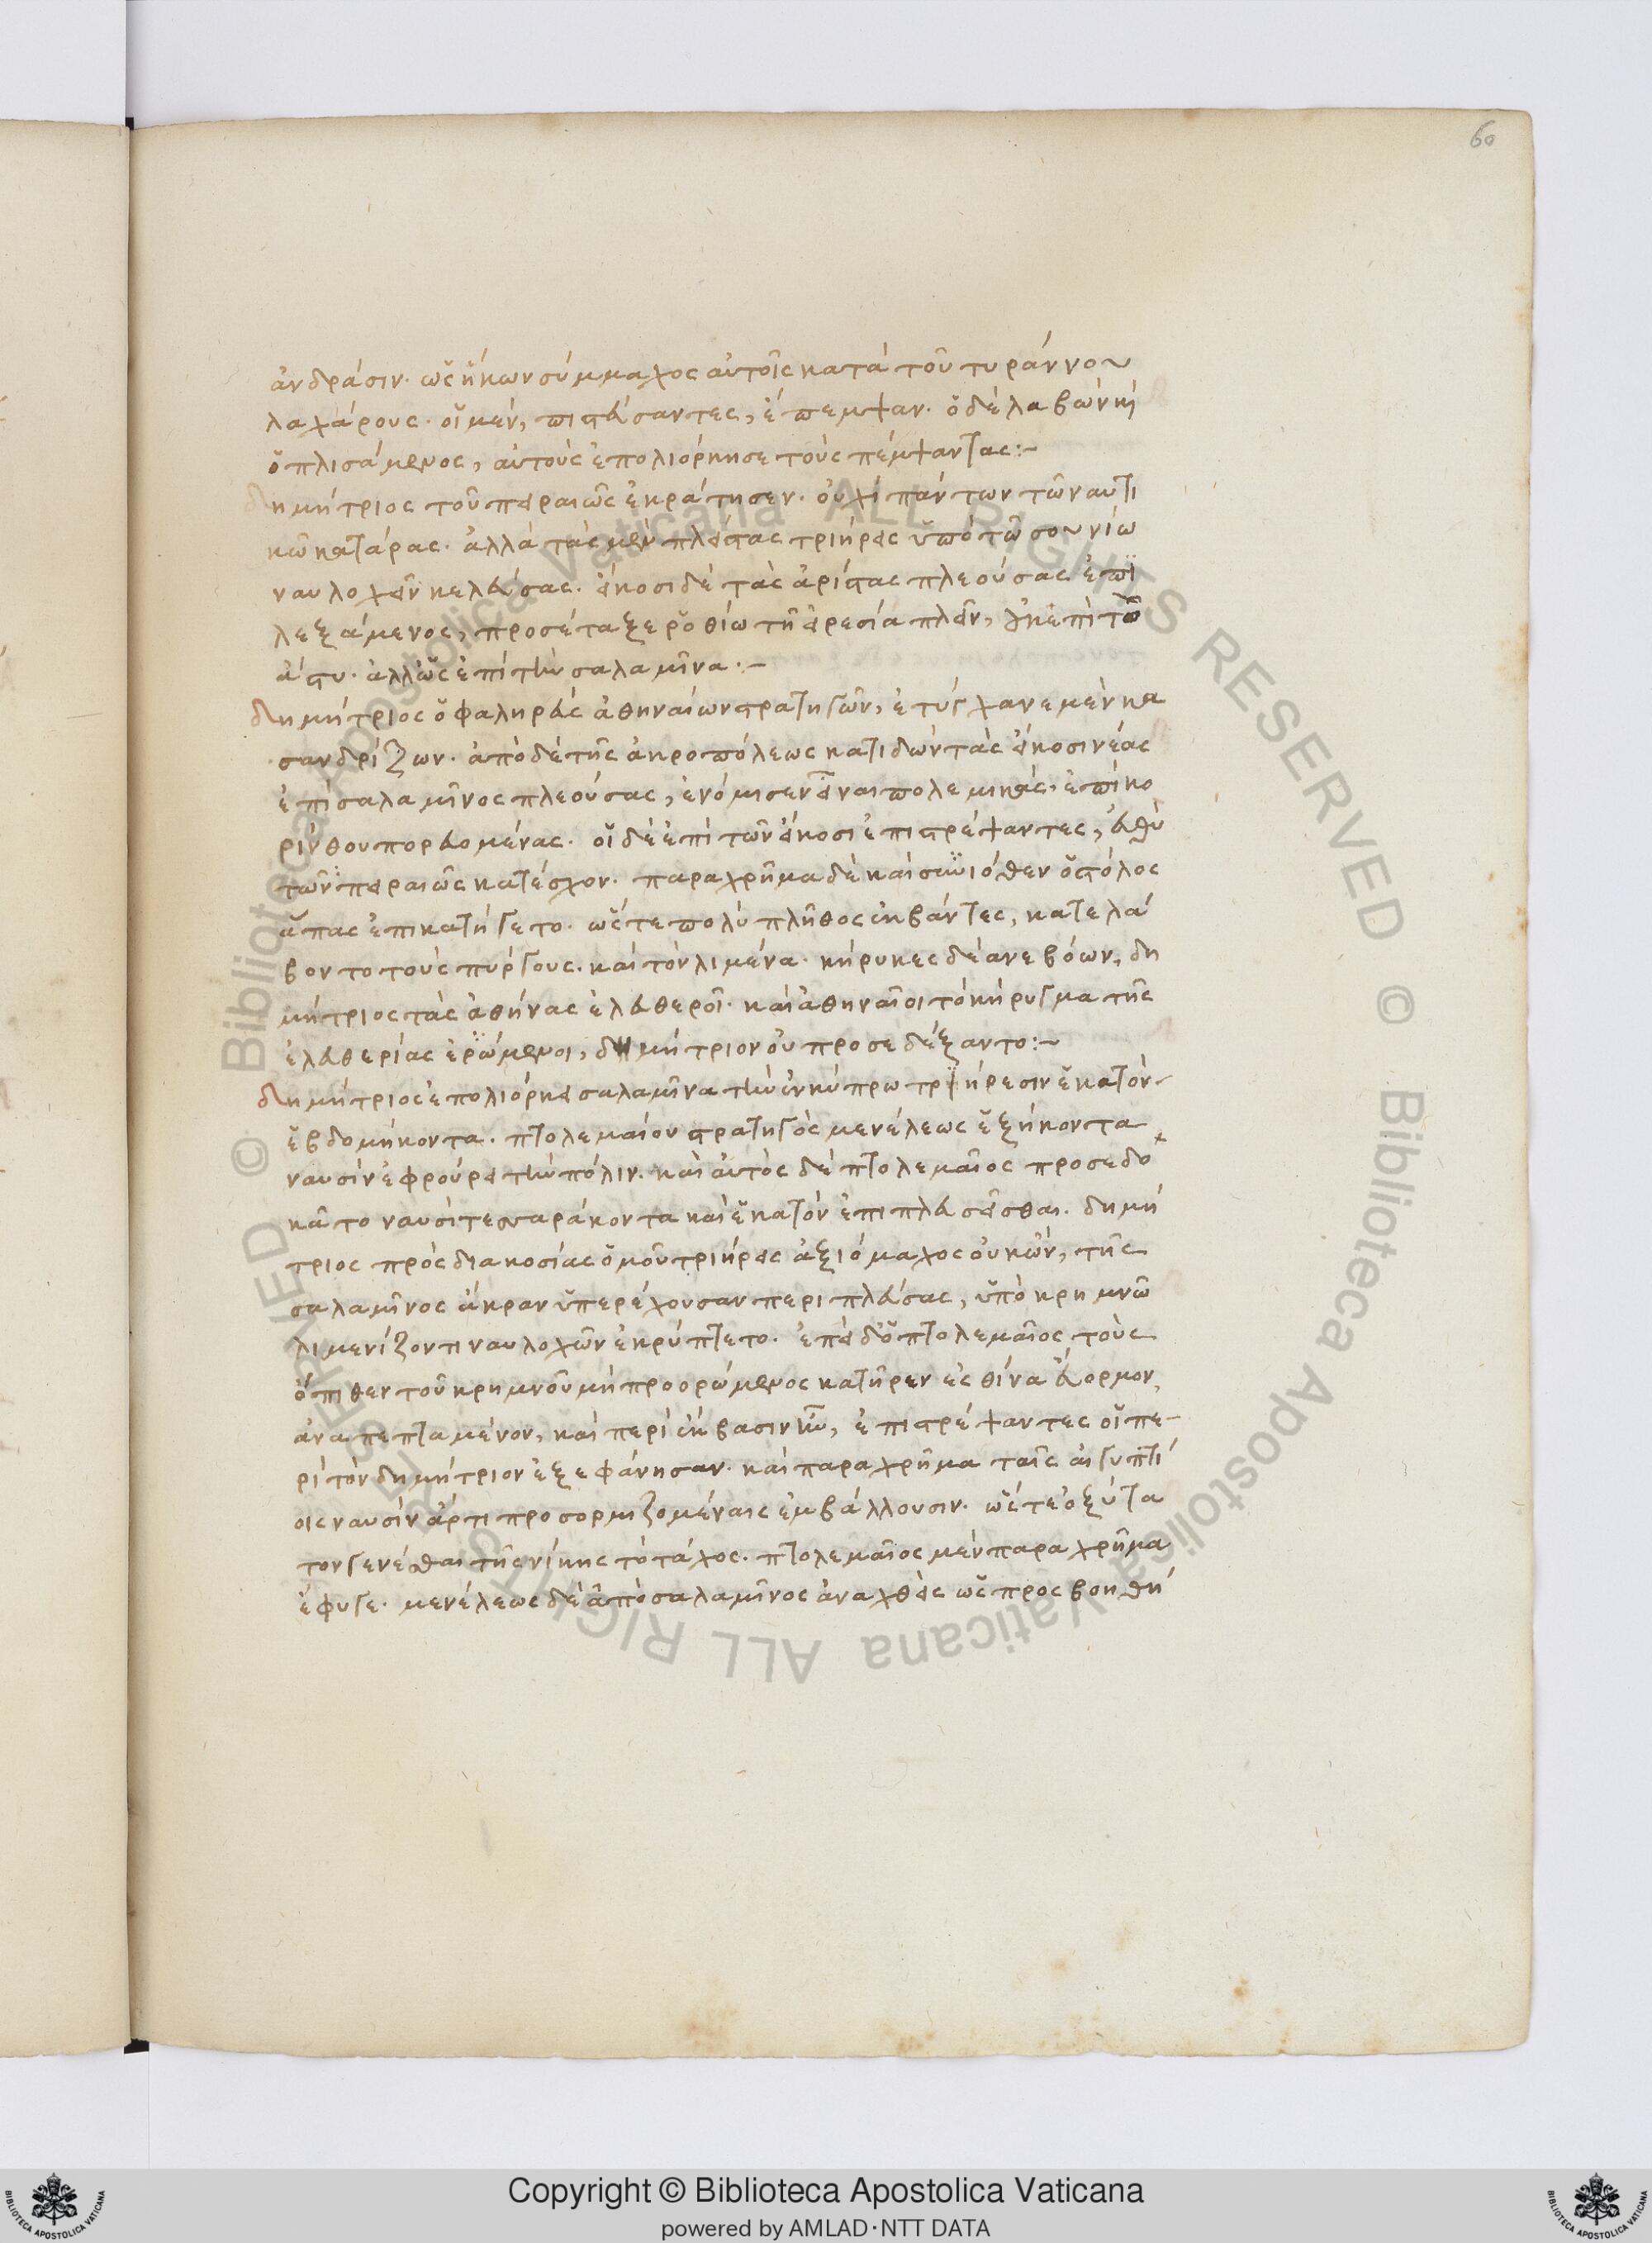 60
ἀνδράσιν. ὡς ἥκων σύμμαχος αὐτοῖς κατὰ τοῦ τυράννου
λαχάρους. οἱ μὲν, πιστεύσαντες, ἔπεμψαν. ὁ δὲ λαβὼν καὶ
ὁπλισάμενος, αὐτοὺς ἐπολιόρκησε τοὺς πέμψαντας:-
δημήτριος τοῦ πειραιῶς ἐκράτησεν. οὐχὶ πάντων τῶ ναυτι
κῶ κατάρας. ἀλλὰ τὰς μὲν πλείστας τριήρεις ὑπὸ τῶ σουνίω
ναυλοχεῖν κελεύσας. εἴκοσι δὲ τὰς ἀρίστας πλεούσας ἐπι
λεξάμενος, προσέταξε ῥοθίω τῆ εἰρεσία πλεῖν, οὐκ ἐπὶ τὸ
ἄστυ. ἀλλ' ὡς ἐπὶ τὴν σαλαμῖνα.-
δημήτριος ὁ φαληρεὺς ἀθηναίων στρατηγῶν, ἐτύγχανε μὲν κα
σανδρίζων. ἀπὸ δὲ τῆς ἀκροπόλεως κατιδὼν τὰς εἴκοσι νέας
ἐπὶ σαλαμῖνος πλεούσας, ἐνόμισεν εἶναι πολεμικὰς. ἐπὶ κο
ρίνθου πορευομένας. οἱ δὲ ἐπὶ τῶν εἴκοσι ἐπιστρέψαντες, εὐθὺ
τῶν πειραιῶς κατέσχον. παραχρῆμα δὲ καὶ σουνιόθεν ὁ στόλος
ἅπας ἐπικατήγετο. ὥστε πολὺ πλῆθος ἐκβάντες, κατελά
βοντο τοὺς πύργους. καὶ τὸν λιμένα. κήρυκες δὲ ἀνεβόων, δη
μήτριος τὰς ἀθήνας ἐλευθεροῖ. καὶ ἀθηναῖοι τὸ κήρυγμα τῆς
ἐλευθερίας ἐρώμενοι, δημήτριον οὐ προσεδέξαντο:-
δημήτριος ἐπολιόρκει σαλαμῖνα τὴν ἐν κύπρω τριήρεσιν ἑκατὸν
ἑβδομήκοντα. πτολεμαίου στρατηγὸς μενέλεως ἑξήκοντα
ναυσὶν ἐφρούρει τὴν πόλιν. καὶ αὐτὸς δὲ πτολεμαῖος προσεδο
κᾶτο ναυσὶ τεσσαράκοντα καὶ ἑκατὸν ἐπιπλευσεῖσθαι. δημή
τριος πρὸς διακοσίας ὁμοῦ τριήρεις ἀξιόμαχος οὐκ ὢν, τῆς
σαλαμῖνος ἄκραν ὑπερέχουσαν περιπλεύσας, ὑπὸ κρημνῶ
λιμενίζοντι ναυλοχῶν ἐκρύπτετο. ἐπεὶ δ' ὁ πτολεμαῖος τοὺς
ὄπιθεν τοῦ κρημνοῦ μὴ προορώμενος κατῆρεν εἰς θίνα εὔορμον,
ἀναπεπταμένον, καὶ περὶ ἔκβασιν ἦν, ἐπιστρέψαντες οἱ πε
ρὶ τὸν δημήτριον ἐξεφάνησαν. καὶ παραχρῆμα ταῖς αἰγυπτί
οις ναυσὶν ἄρτι προσορμιζομέναις ἐμβάλλουσιν. ὥστε ὀξύτα
τον γενέσθαι τῆς νίκης τὸ τάχος. πτολεμαῖος μὲν παραχρῆμα
ἔφυγε. μενέλεως δὲ ἀπὸ σαλαμῖνος ἀναχθεὶς ὡς προσβοηθή
© Biblioteca Apostolica Vaticana ALL RIGHTS RESERVED © Biblioteca Apostolica Vaticana ALL RIGHTS RESERVED
Copyright © Biblioteca Apostolica Vaticana
powered by AMLAD·NTT DATA
BIBLIOTECA APOSTOLICA VATICANA
BIBLIOTECA APOSTOLICA VATICANA